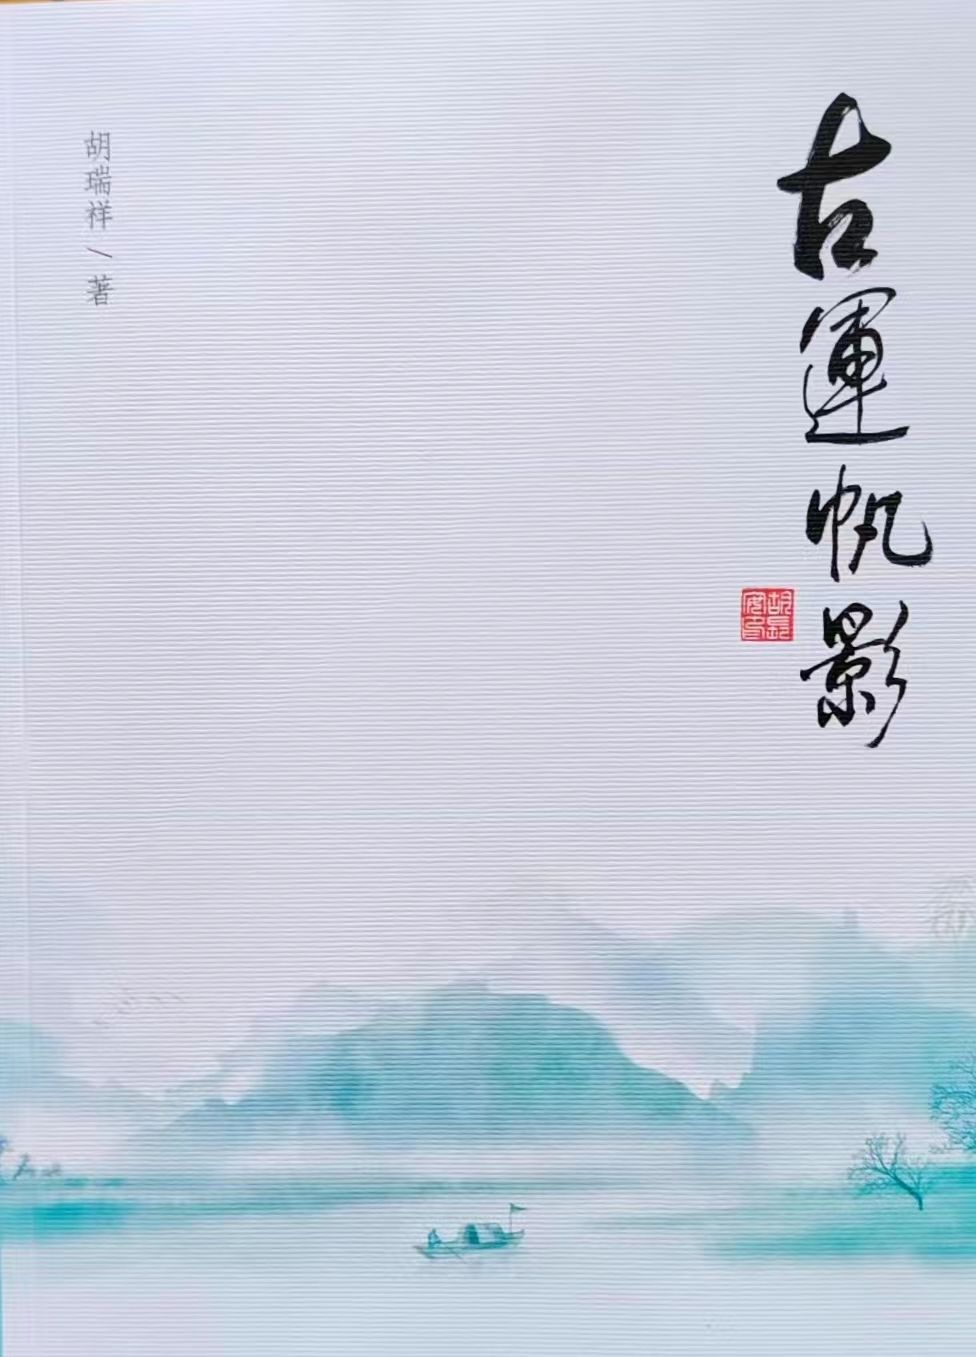 古運帆影
胡瑞祥/著